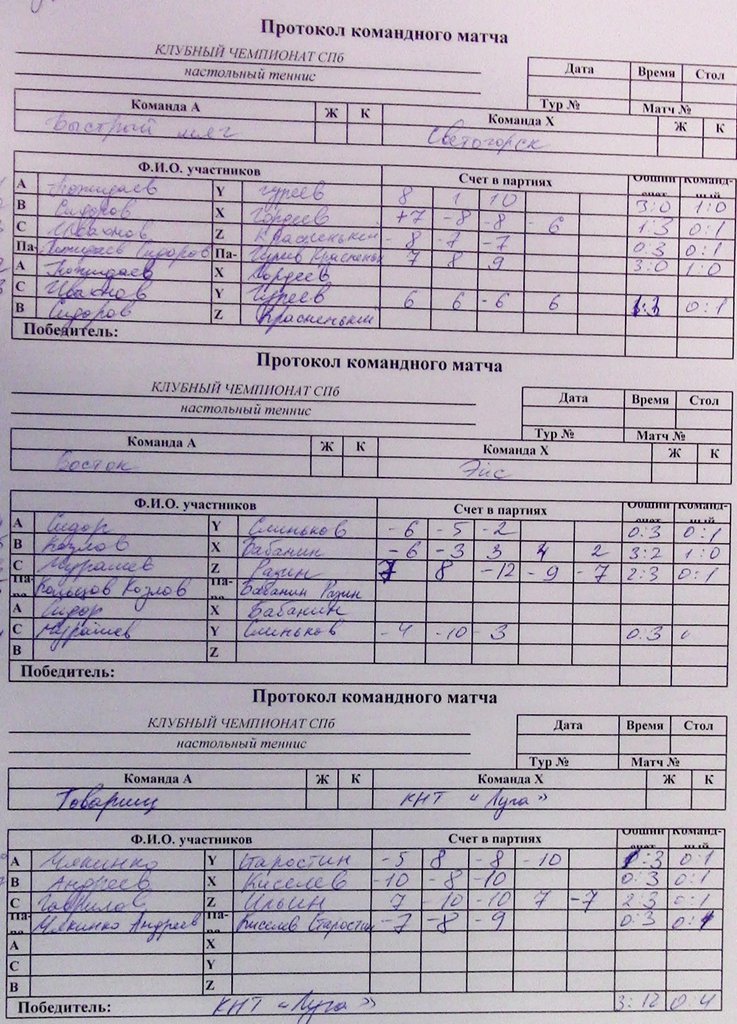 Протокол командного матча
КЛУБНЫЙ ЧЕМПИОНАТ СПб
настольный теннис
Дата Время Стол
Тур № Матч №
Команда А Ж К Команда Х Ж К
Быстрый мяч Светогорск
Ф.И.О. участников Счет в партиях Общий счет Команд-ный
A Пожидаев Y Гуреев 8 1 10 3:0 1:0
B Сидоров X Гордеев +7 -8 -8 -6 1:3 0:1
C Иванов Z Красненький -8 -7 -7 0:3 0:1
Па- Пожидаев Сидоров Па- Гуреев Красненький 7 8 9 3:0 1:0
A Пожидаев X Гордеев
C Иванов Y Гуреев 6 6 -6 6 0:1
B Сидоров Z Красненький
Победитель:
Протокол командного матча
КЛУБНЫЙ ЧЕМПИОНАТ СПб
настольный теннис
Дата Время Стол
Тур № Матч №
Команда А Ж К Команда Х Ж К
Восток Эйс
Ф.И.О. участников Счет в партиях Общий счет Команд-ный
A Сидор Y Слиньков -6 -5 -2 0:3 0:1
B Козлов X Бабанин -6 -3 3 4 2 3:2 1:0
C Мурашев Z Разин 7 8 -12 -9 -7 2:3 0:1
Па-ра Козлов Па-ра Бабанин Разин
A Сидор X Бабанин
C Мурашев Y Слиньков -4 -10 -3 0:3 0
B Z
Победитель:
Протокол командного матча
КЛУБНЫЙ ЧЕМПИОНАТ СПб
настольный теннис
Дата Время Стол
Тур № Матч №
Команда А Ж К Команда Х Ж К
Товарищ КНТ «Луга»
Ф.И.О. участников Счет в партиях Общий счет Команд-ный
A Чякинко Y Старостин -5 8 -8 -10 1:3 0:1
B Андреев X Киселев -10 -8 -10 0:3 0:1
C Гаврилов Z Ильин 7 -10 -10 7 -7 2:3 0:1
Па-ра Чякинко Андреев Па-ра Киселев Старостин -7 -8 -9 0:3 0:1
A X
C Y
B Z
Победитель: КНТ «Луга» 3:12 0:4